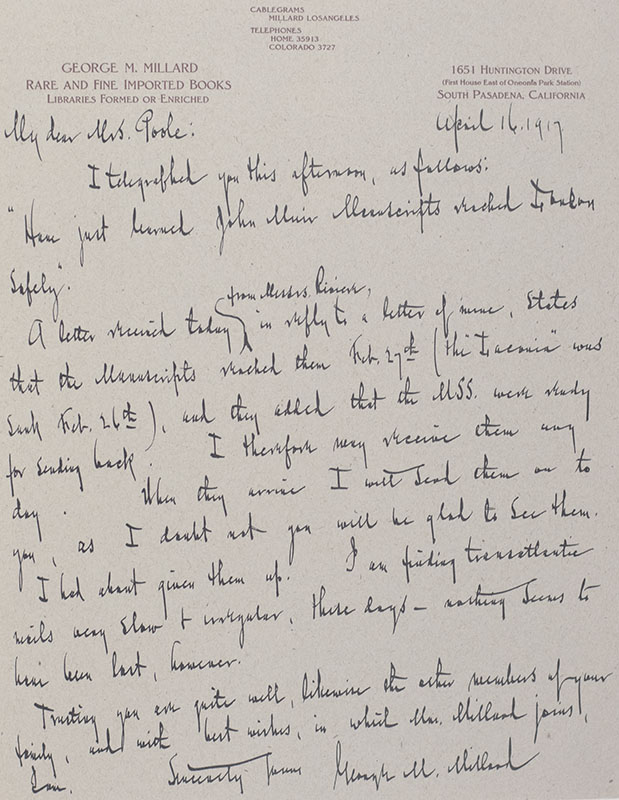 CABLEGRAMS
MILLARD LOSANGELES
TELEPHONES
HOME 35913
COLORADO 3727
GEORGE M. MILLARD
RARE AND FINE IMPORTED BOOKS
LIBRARIES FORMED OR ENRICHED
1651 HUNTINGTON DRIVE
(First House East of Oneonta Park Station)
SOUTH PASADENA, CALIFORNIA
April 16. 1917
My dear Mrs. Poole:
I telegraphed you this afternoon, as follows:
"Have just learned John Muir Manuscripts reached London
Safely".
from Messrs. Riviere,
A letter received today in reply to a letter of mine, States
that the Manuscripts reached them Feb. 27th (the "Laconia" was
Sunk Feb. 26th), and they added that the MSS. were ready
for sending back. I therefore may receive them any
day. When they arrive I will send them on to
you, as I doubt not you will be glad to see them.
I had about given them up. I am finding transatlantic
mails very slow & irregular, these days – nothing seems to
have been lost, however.
Trusting you are quite well, likewise the other members of your
family, and with best wishes, in which Mrs. Millard joins,
I am.
Sincerely yours
George M. Millard